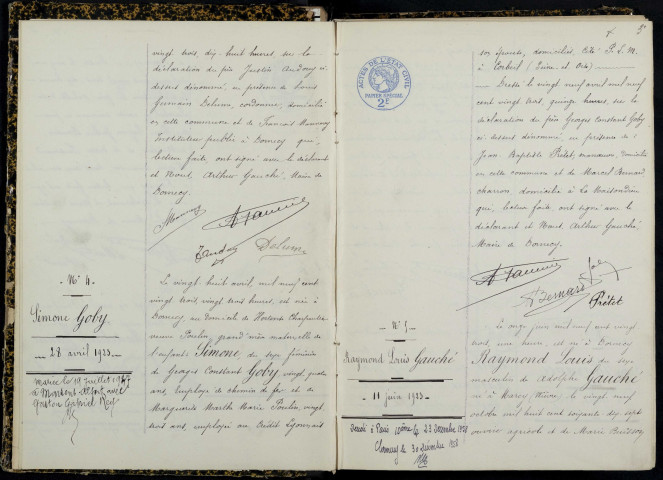 vingt trois, dix huit heures, sur la
déclaration du père
dessus dénommé, en présence de Louis
Germain Delume, cordonnier, domicilié
en cette commune et de François
Instituteur public à Dornecy qui,
lecture faite, ont signé avec le déclarant
et Nous, Arthur Gauché, Maire de
Dornecy.
N° 4
Simone Goby
28 avril 1923
Marié le 19 Juillet
à avec
Gaston Gabriel
Le vingt huit avril, mil neuf cent
vingt trois, vingt trois heures, est née à
Dornecy, au domicile de Hortense Charpentier
veuve Poulin, grand'mère maternelle de
l'enfant: Simone, du sexe féminin
de Georges Constant Goby, vingt quatre
ans, employé de chemin de fer et de
Marguerite Marthe Marie Poulin, vingt
trois ans, employée au Crédit Lyonnais
5
ACTES DE L'ÉTAT CIVIL
PAPIER SPÉCIAL
2F
son épouse, domiciliés, Cité P.L.M.
à Corbeil (Seine et Oise)
Dressé le vingt neuf avril mil neuf
cent vingt trois, quinze heures, sur la
déclaration du père Georges Constant Goby
ci-dessus dénommé, en présence de:
Jean Baptiste Prétet, domicilié
en cette commune et de Marcel Bernard
charron, domicilié à La Maison Dieu
qui, lecture faite, ont signé avec le
déclarant et Nous, Arthur Gauché
Maire de Dornecy.
Bernard
Prétet
N° 5
Raymond Louis Gauché
11 juin 1923
à Paris le 23 Décembre
le 30 Décembre
Le onze juin mil neuf cent vingt
trois, une heure, est né à Dornecy
Raymond Louis du sexe
masculin de Adolphe Gauché
né à (Nièvre) le vingt neuf
octobre mil huit cent soixante dix sept
ouvrier agricole et de Marie